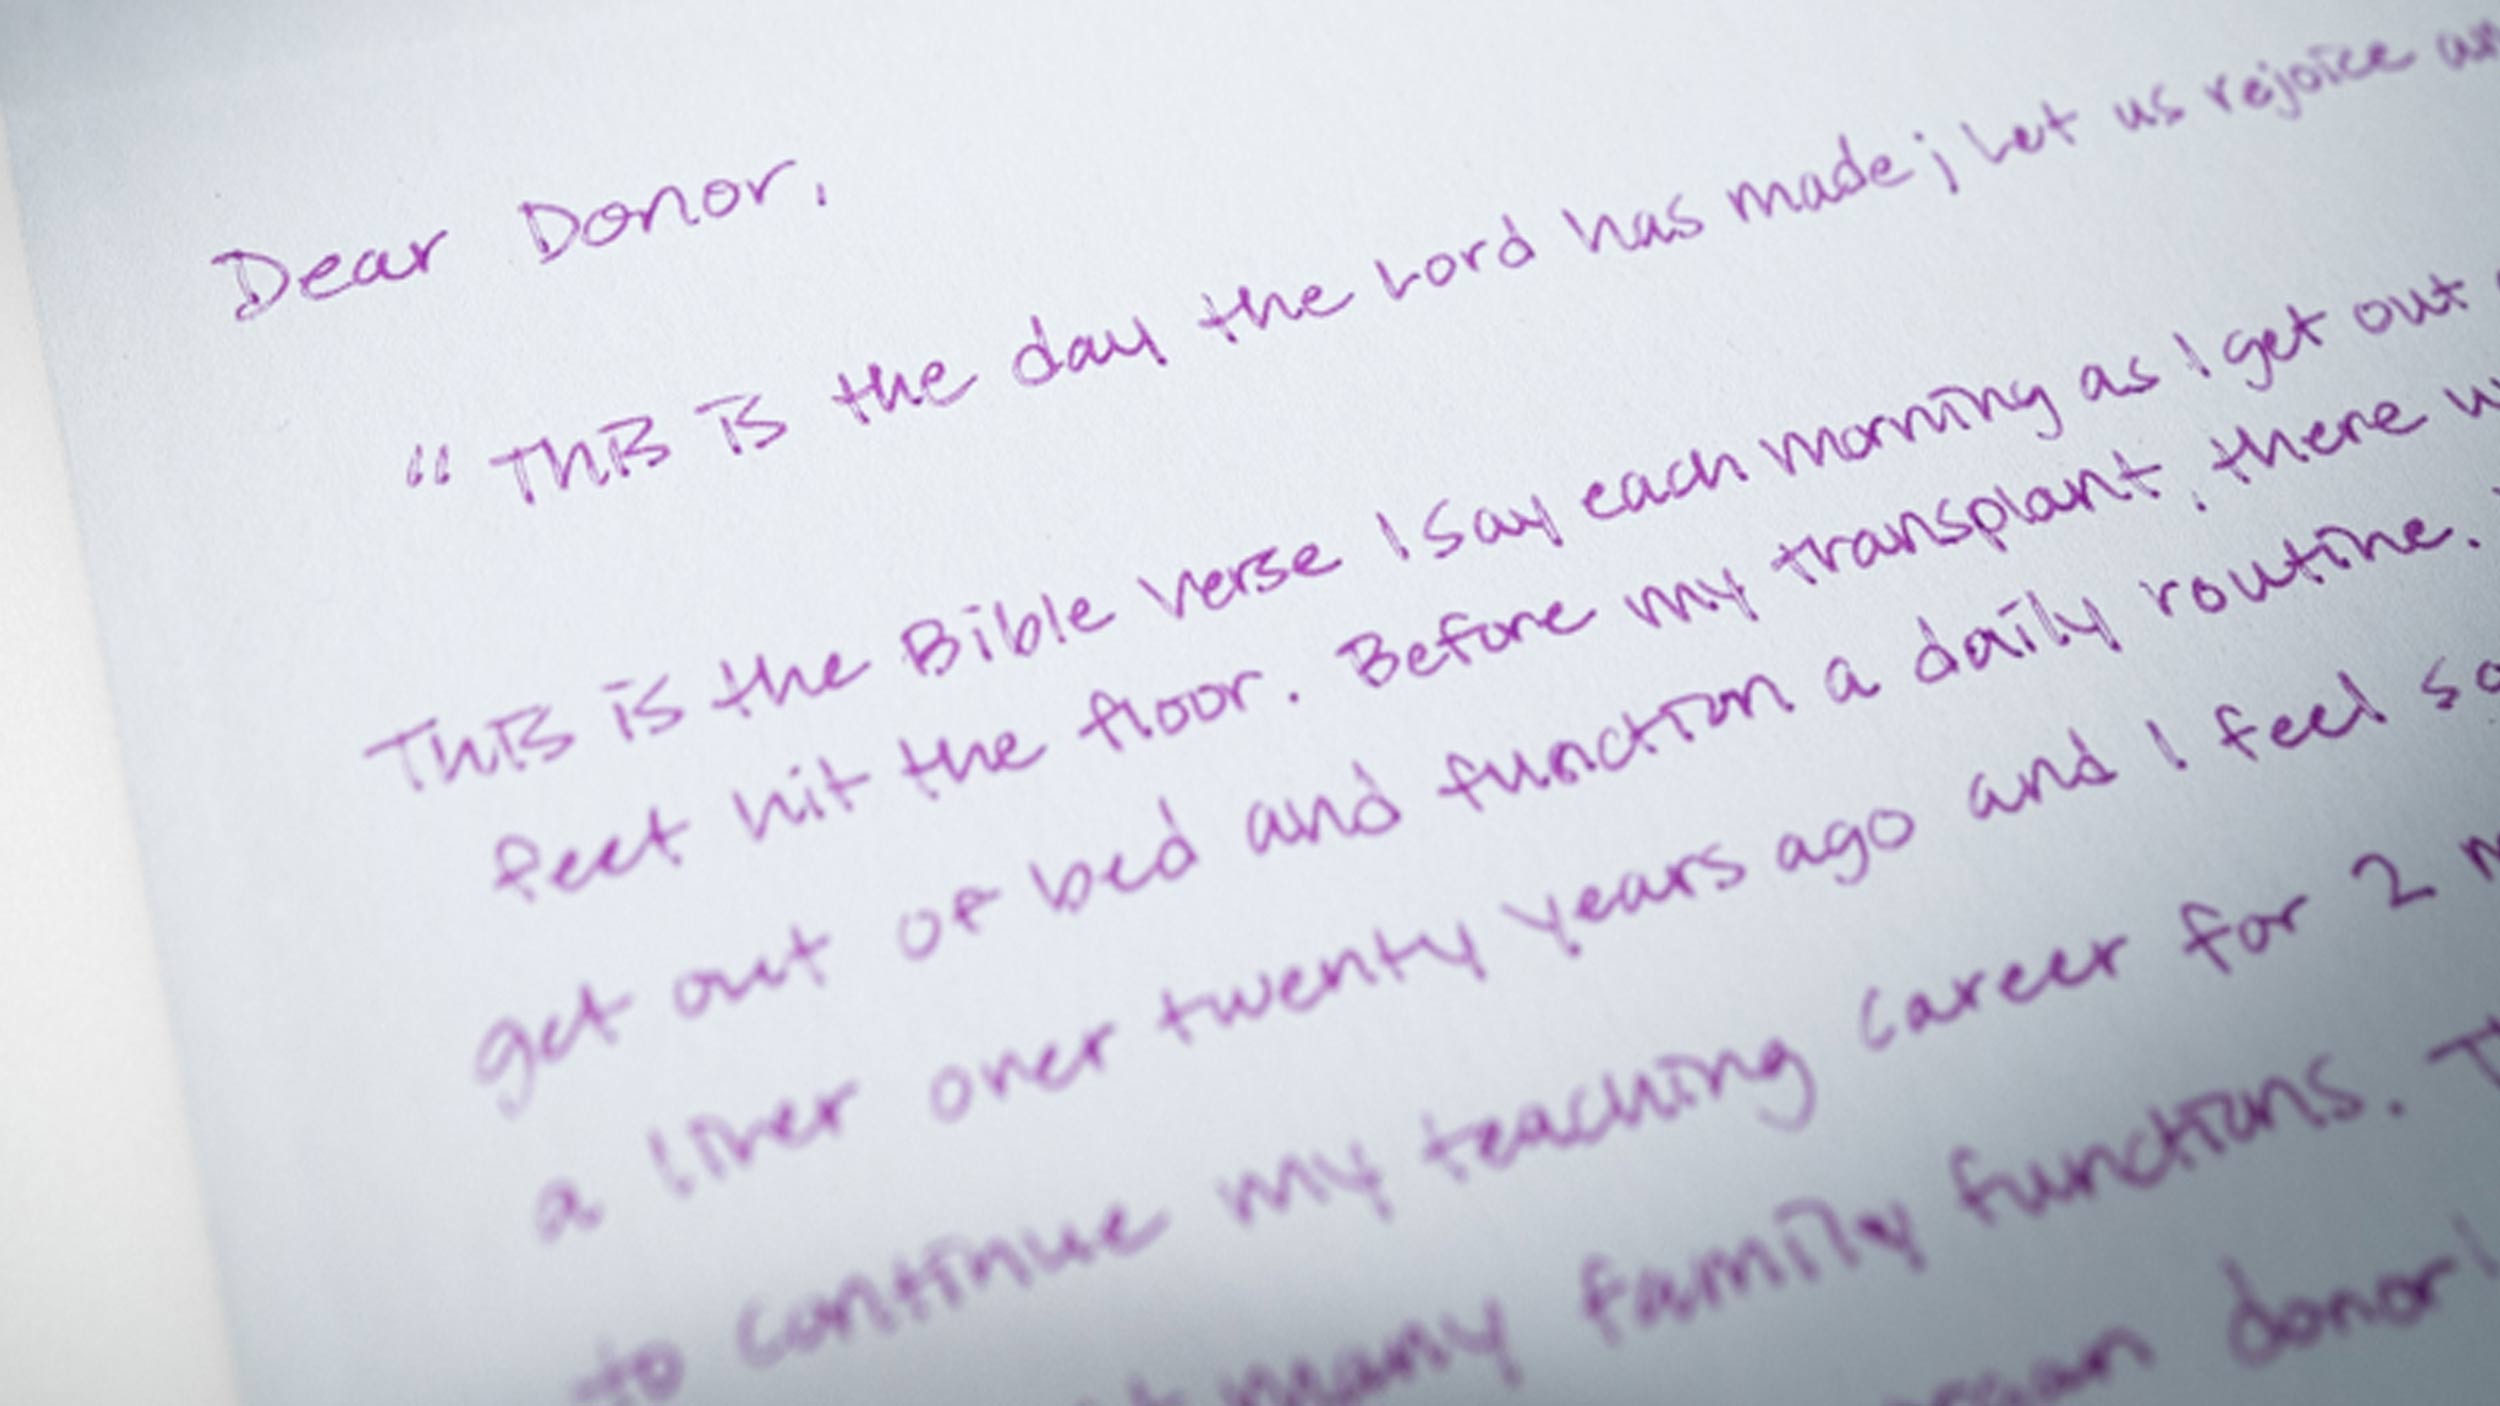 Dear Donor,
" This is the day the Lord has made; Let us rejoice
This is the Bible verse I say each morning as I get out
feet hit the floor. Before my transplant, there
get out of bed and function a daily routine.
a liver over twenty years ago and I feel so
to continue my teaching career for 2
many family functions.
organ donor!